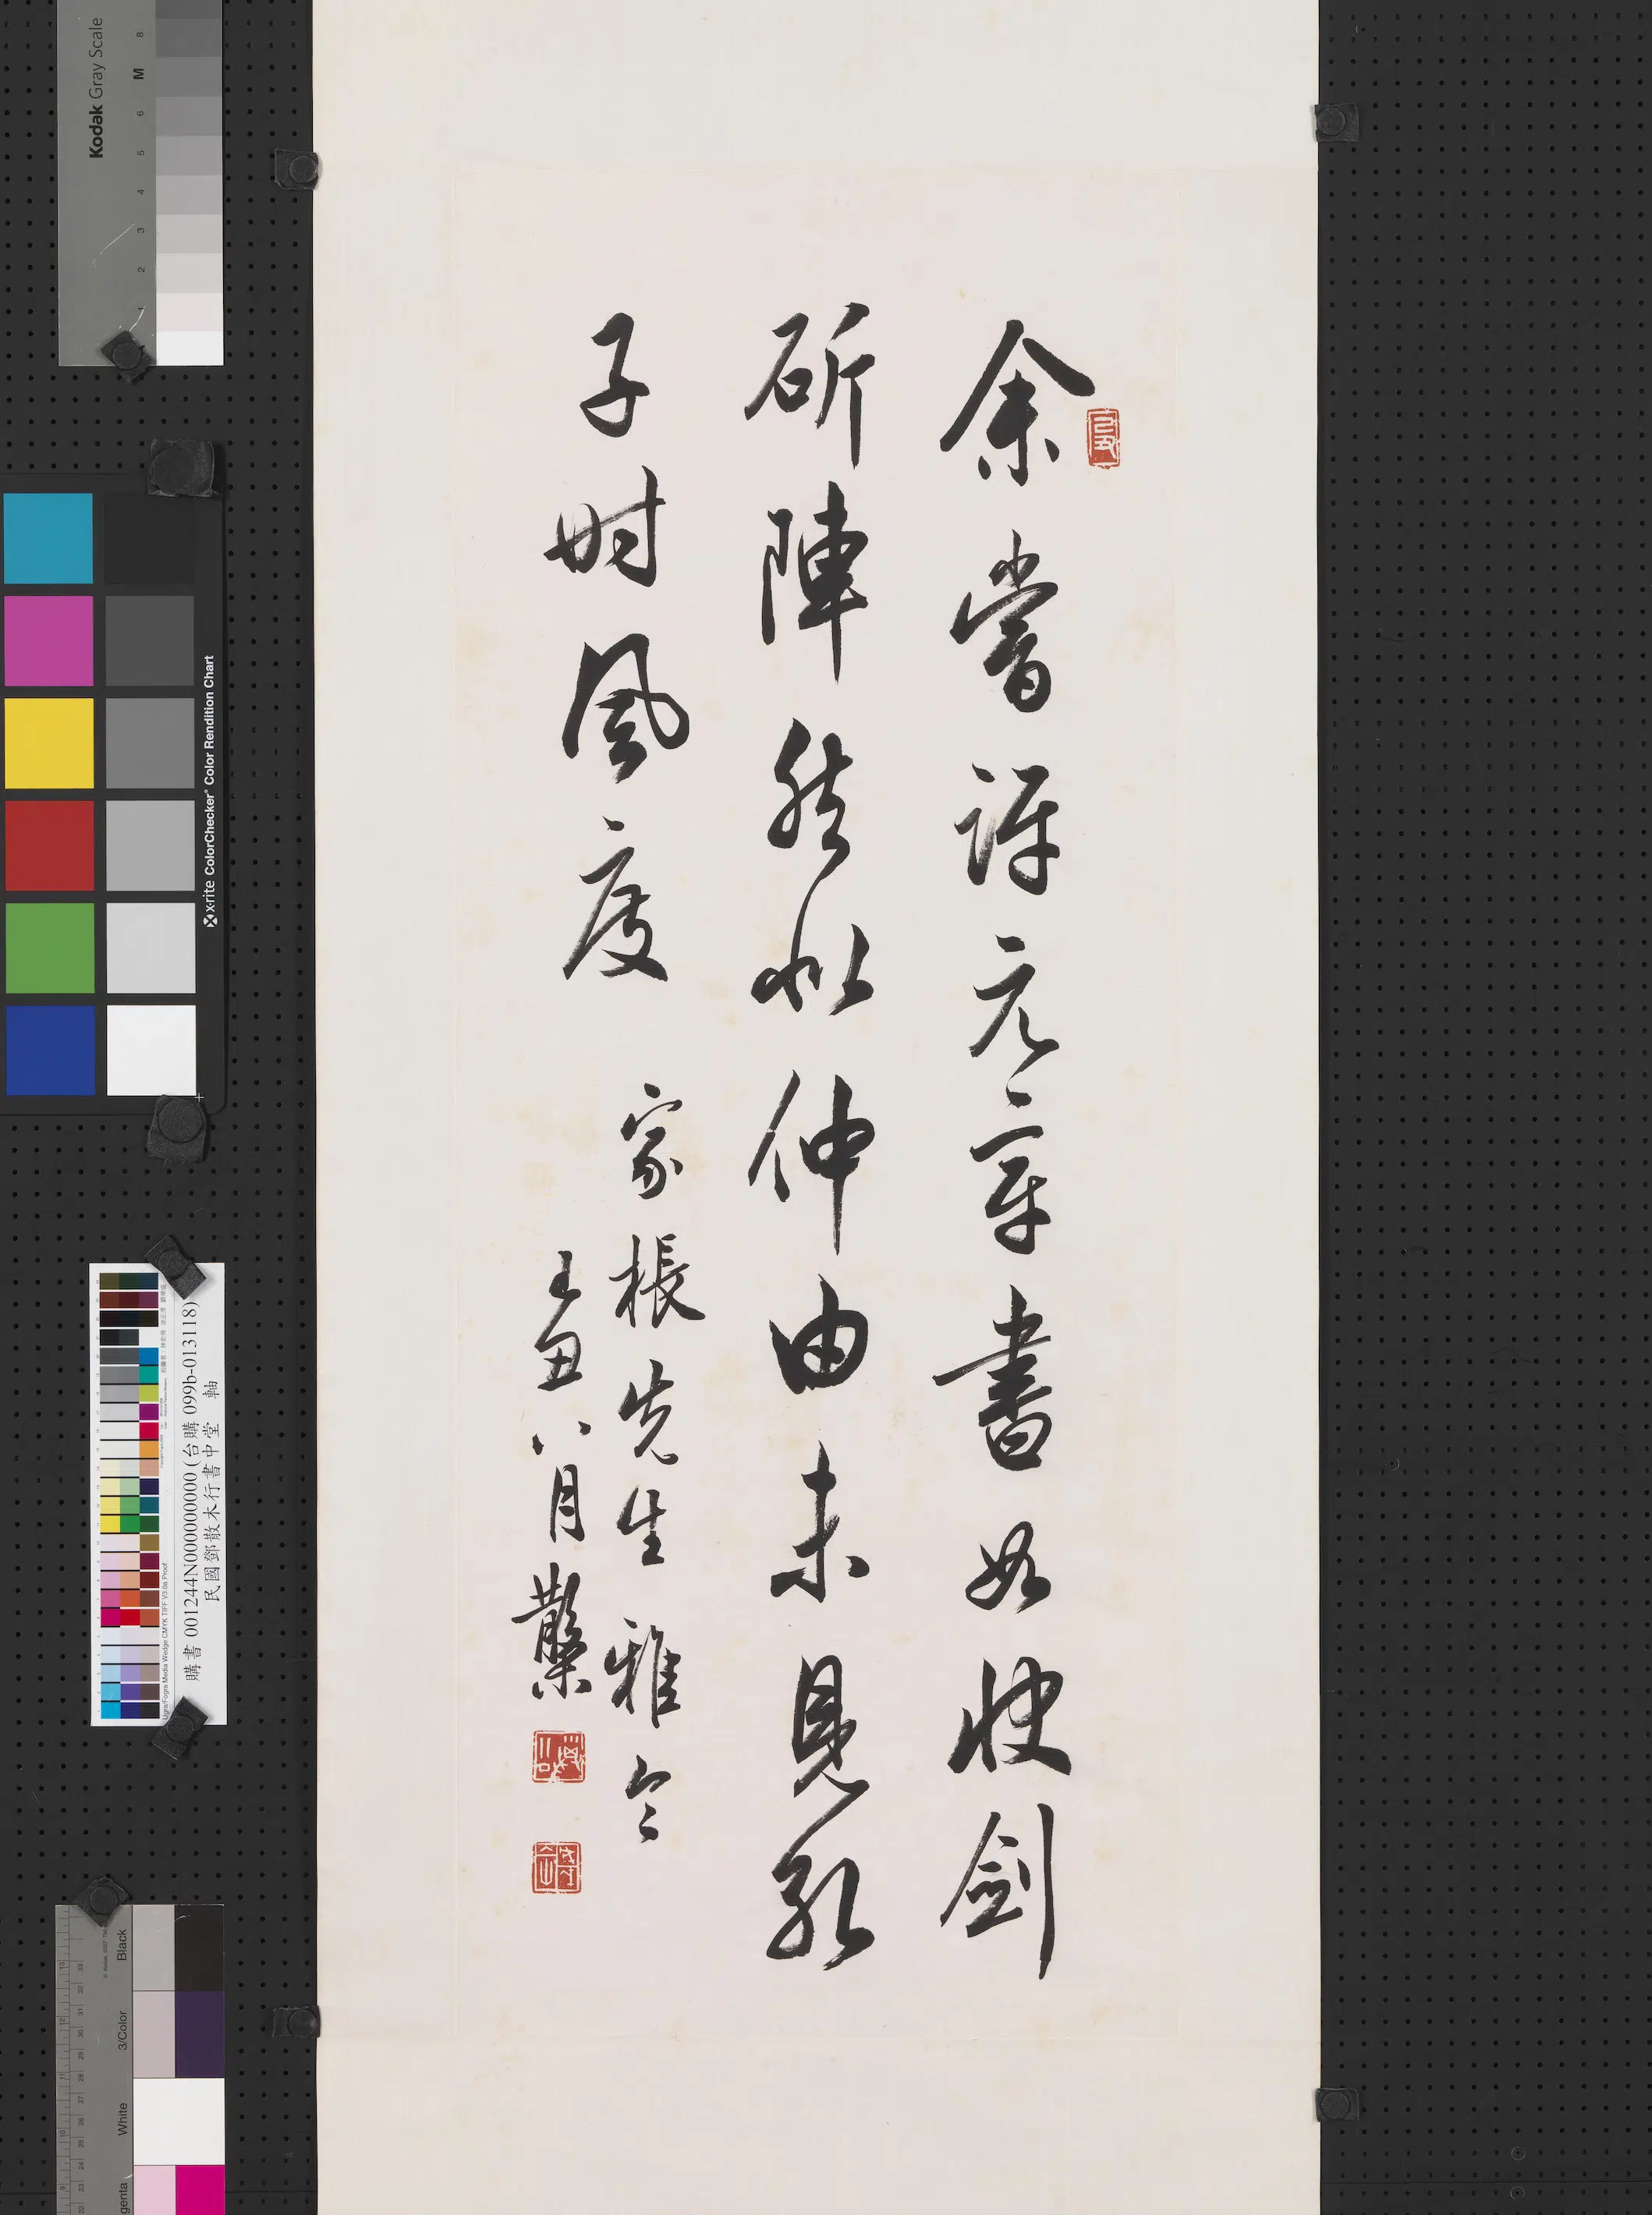 余嘗評元章書如快剑
斫陣然似仲由未見孔
子时風度
家棖先生雅令
辛丑八月散木
Kodak Gray Scale
8
M
6
5
4
3
2
1
x-rite ColorChecker® Color Rendition Chart
購書 001244N000000000 (台購 099b-013118)
民國鄧散木行書中堂 軸
Ugra/Fogra Media Wedge CMYK TIFF V3.0a Proof
Black
3/Color
White
genta